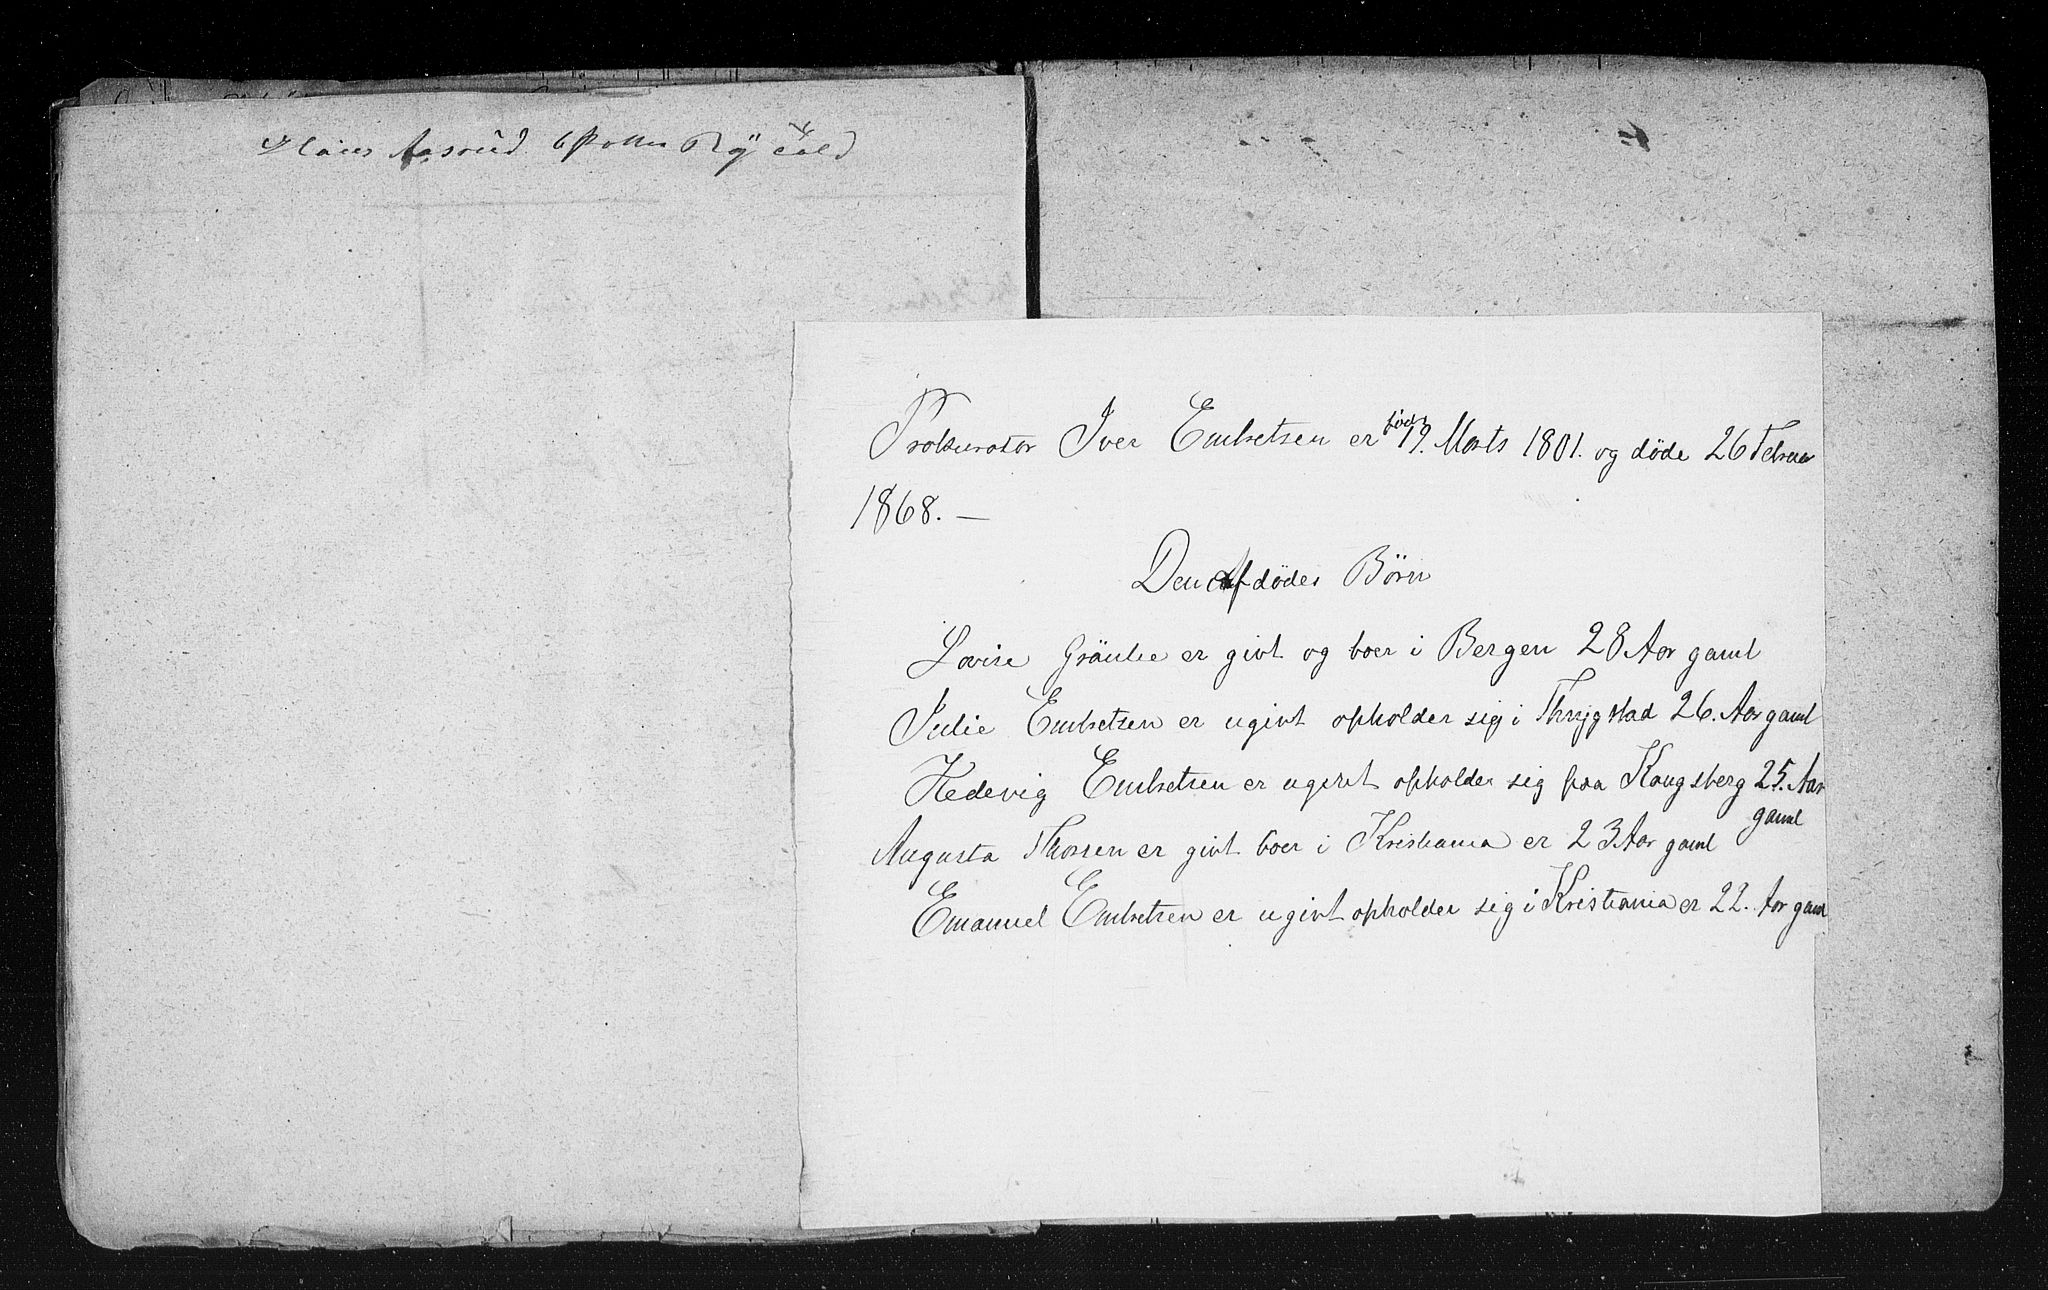 Aasrud
Prokurator Iver Embretsen er født 19. Marts 1801. og døde 26 Februar
1868. —
Den Afdødes Børn
Lovise er givt og boer i Bergen 28 Aar gaml
Julie Embretsen er ugivt opholder sig i Thrygstad 26. Aar gaml
Hedevig Embretsen er ugivt opholder sig paa Kongsberg 25. Aar
gaml
Augusta Thoresen er givt boer i Kristiania er 23 Aar gaml
Emanuel Embretsen er ugivt opholder sig i Kristiania er 22. Aar gaml